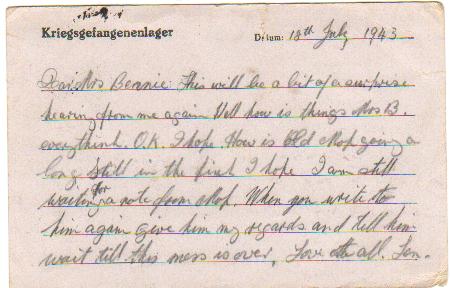 Kriegsgefangenenlager Datum: 18th July 1943
Dear Mrs Bennie. This will be a bit of a surprise
hearing from me again Well how is things Mrs B.
everythink O.K. I hope. How is Old Mop going a
long Still in the pink I hope I am still
waiting for a note from Mop. When you write to
him again give him my regards and tell him
wait till this mess is over, Love to all. Len.